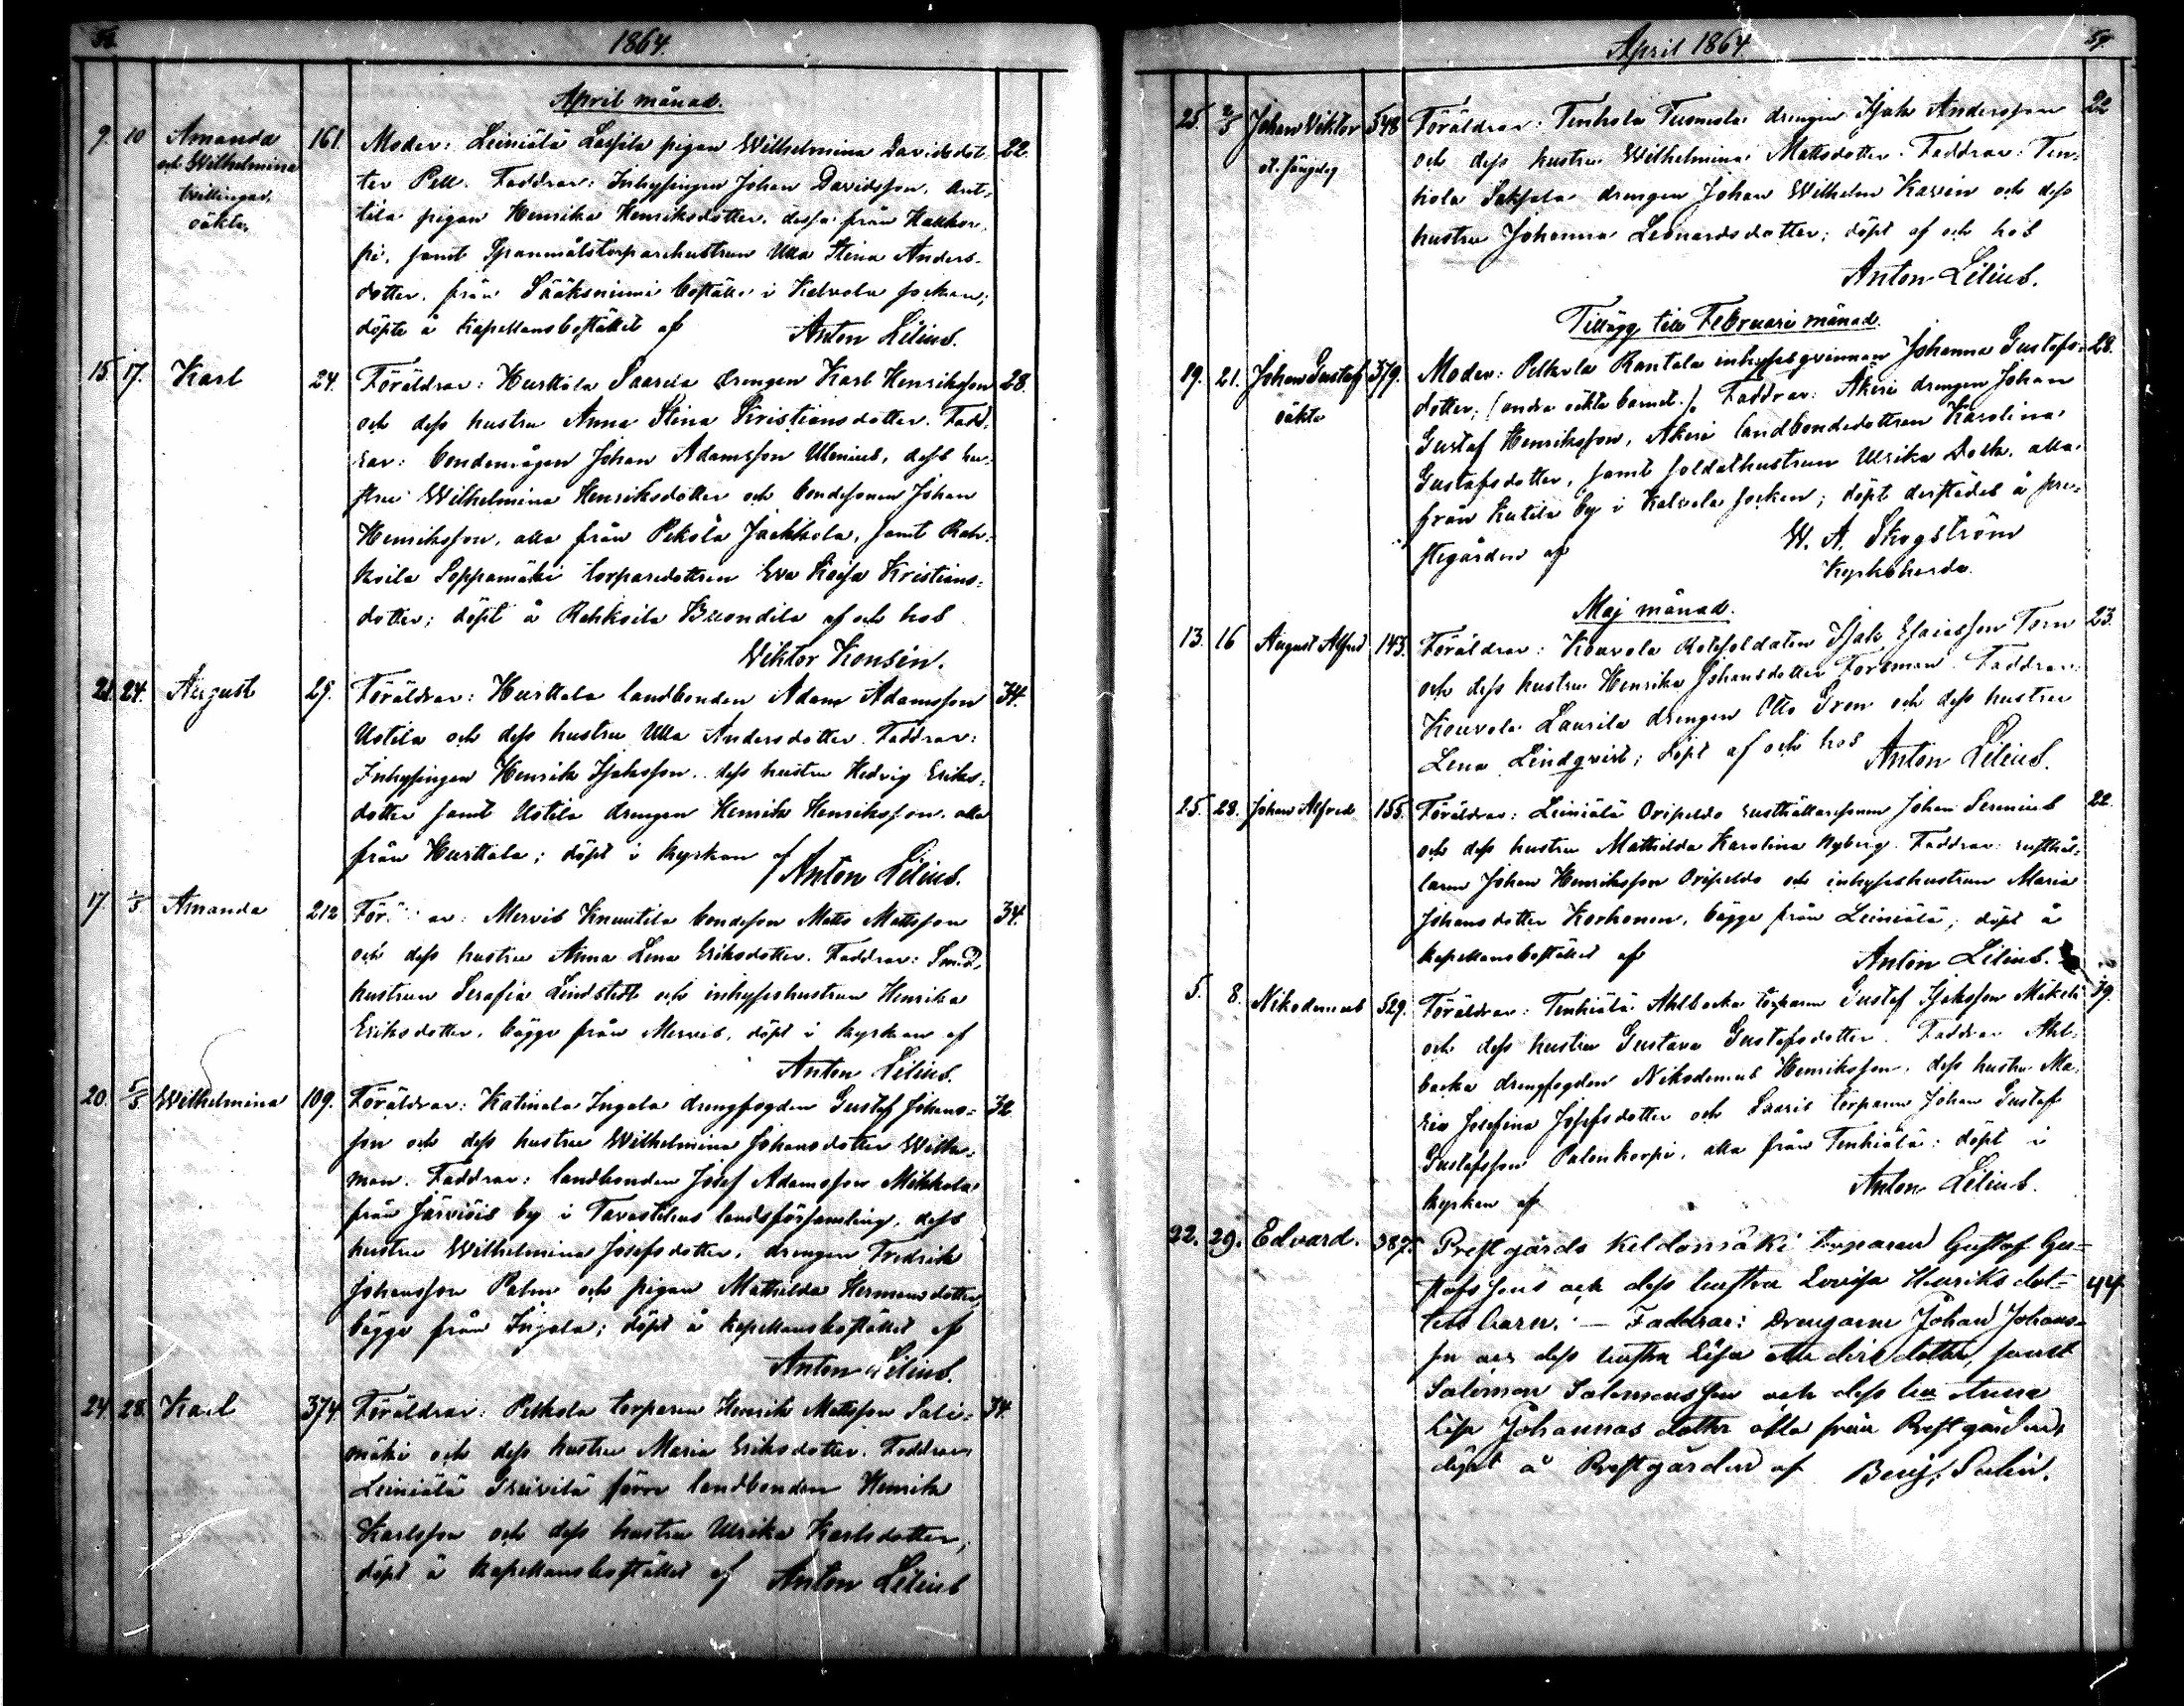 1864.
April månad.
9. 10 Amanda 161. Moder: Leiniälä Lassila pigan Wilhelmina Davidsdot- 22.
och Wilhelmina ter Pell. Faddrar: Inhysingen Johan Davidsson, Ant-
tvillingar, tila pigan Henrika Henriksdotter, dessa från
oäkta, samt Spannmålstorparehustrun Ulla Stina Anders-
dotter, från Sääksniemi boställe i Kalvola socken;
döpte å Kapellansbostället af Anton Lilius.
15. 17. Karl 24. Föräldrar: Hurttala Saarela drengen Karl Henriksson 28.
och dess hustru Anna Stina Kristiansdotter. Fadd-
rar: bondemågen Johan Adamsson Ulenius, dess hu-
stru Wilhelmina Henriksdotter och bondesonen Johan
Henriksson, alla från Pekola Jaakkola, samt Rah-
koila Seppämäki torparedottren Eva Kaisa Kristians-
dotter; döpt å Rahkoila af och hos
Viktor Konsin.
21. 24. August 29. Föräldrar: Hurttala landbonden Adam Adamsson 34.
Ustila och dess hustru Ulla Andersdotter. Faddrar:
Inhysingen Henrik Isaksson, dess hustru Hedvig Eriks-
dotter samt Ustila drengen Henrik Henriksson, alla
från Hurttala; döpt i kyrkan af
Anton Lilius.
17. 1/5 Amanda 212 För ar: Mervis Knuutila bondeson Matts Mattsson 34.
och dess hustru Anna Lena Eriksdotter. Faddrar: Smed-
hustrun Serafia Lindstedt och inhyseshustrun Henrika
Eriksdotter, bägge från Mervis, döpt i kyrkan af
Anton Lilius.
20. 5/5 Wilhelmina 109. Föräldrar: Katinala Ingala drengfogden Gustaf Johans- 32
son och dess hustru Wilhelmina Johansdotter Wilk-
man. Faddrar: landbonden Josef Adamsson Mikkola
från Järvisis by i Tavastehus landsförsamling, dess
hustru Wilhelmina Josefsdotter, drengen Fredrik
Johansson Palm och pigan Mathilda Hermansdotter,
bägge från Ingala; döpt å Kapellansbostället af
Anton Lilius.
24. 28. Karl 374. Föräldrar: Pelkola torparen Henrik Mattsson Sali- 34.
mäki och dess hustru Maria Eriksdotter. Faddrar
Leiniälä förre landbonden Henrik
Karlsson och dess hustru Ulrika Karlsdotter,
döpt å Kapellansbostället af Anton Lilius
April 1864. 57.
25. 2/5 Johan Viktor 548 Föräldrar: Tenhola Tuomola drengen Isak Andersson 22
och dess hustru Wilhelmina Mattsdotter. Faddrar: Ten-
hola Saksala drengen Johan Wilhelm Kaven och dess
hustru Johanna Leonardsdotter; döpt af och hos
Anton Lilius.
Tillägg till Februari månad.
19. 21. Johan Gustaf 379. Moder: Pelkola Rantala inhysesqvinnan Johanna Gustafs- 28.
oäkta dotter; (andra oäkta barnet.). Faddrar: Åkeri drengen Johan
Gustaf Henriksson, Åkeri landbondedottren Karolina
Gustafsdotter, samt soldathustrun Ulrika Dolk, alla
från Kutila by i Kalvola socken; döpt derstädes å pre-
stegården af W. A. Skogström
Kyrkoherde.
Maj månad.
13. 16 August Alfred 143. Föräldrar: Kouvola Rotesoldaten Isak Esaiasson Torn 23.
och dess hustru Henrika Johansdotter Forsman. Faddrar:
Kouvola Laurila drengen Otto Gren och dess hustru
Lena Lindqvist; döpt af och hos Anton Lilius.
25. 28. Johan Alfred 155. Föräldrar: Leiniälä Oripeldo rusthållaresonen Johan Sirenius 22.
och dess hustru Mathilda Karolina Nyberg. Faddrar: rusthål-
laren Johan Henriksson Oripeldo och inhyseshustrun Maria
Johansdotter Korhonen, bägge från Leiniälä; döpt å
kapellansbostället af Anton Lilius.
5. 8. Nikodemus 529. Föräldrar: Tenhiälä Ahlbacka torparen Gustaf Isaksson Mäkelä 39.
och dess hustru Gustava Gustafsdotter. Faddrar Ahl-
backa drengfogden Nikodemus Henriksson, dess hustru Ma-
ria Josefina Josefsdotter och Saaris torparen Johan Gustaf
Gustafsson Palonkorpi, alla från Tenhiälä; döpt i
kyrkan af Anton Lilius.
22. 29. Edvard. 387. Prestgårds Keldomäki torparen Gustaf Gu-
stafssons och dess hustru Lovisa Henriksdot- 44
ters barn. — Faddrar: Drengarne Johan Johans-
son och dess hustru Lisa Andersdotter, samt
Salomon Salomonsson och dess hu Anna
Lisa Johannasdotter alla från Prestgården,
döpt å Prestgården af Benj. Salin.